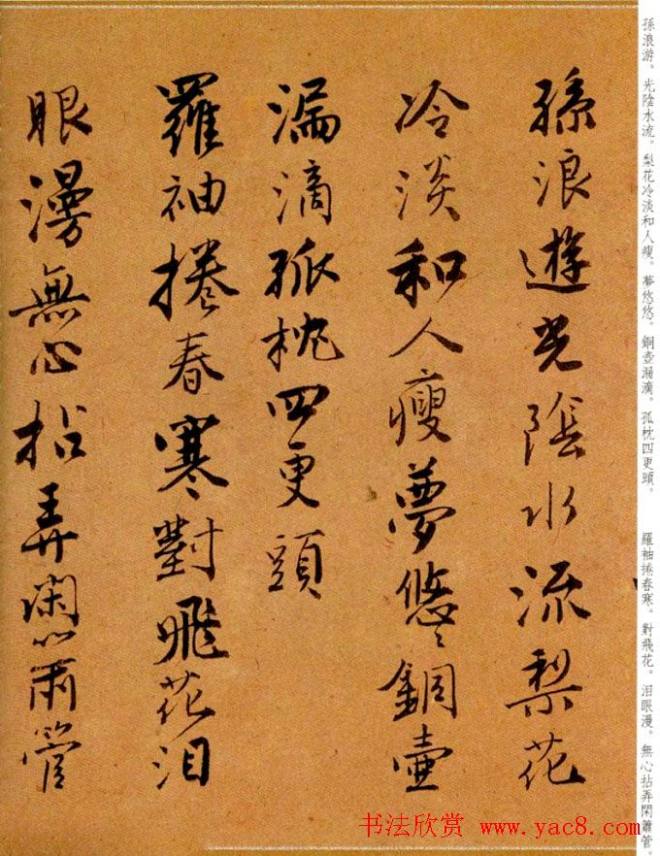 孫浪遊光陰水流梨花
冷淡和人瘦夢悠〻銅壺
漏滴孤枕四更頭
羅袖捲春寒對飛花泪
眼漫無心拈弄閑簫管
孫浪游。光陰水流。梨花冷淡和人瘦。夢悠悠。銅壺漏滴。孤枕四更頭。
羅袖捲春寒。對飛花。泪眼漫。無心拈弄閑簫管。
书法欣赏 www.yac8.com